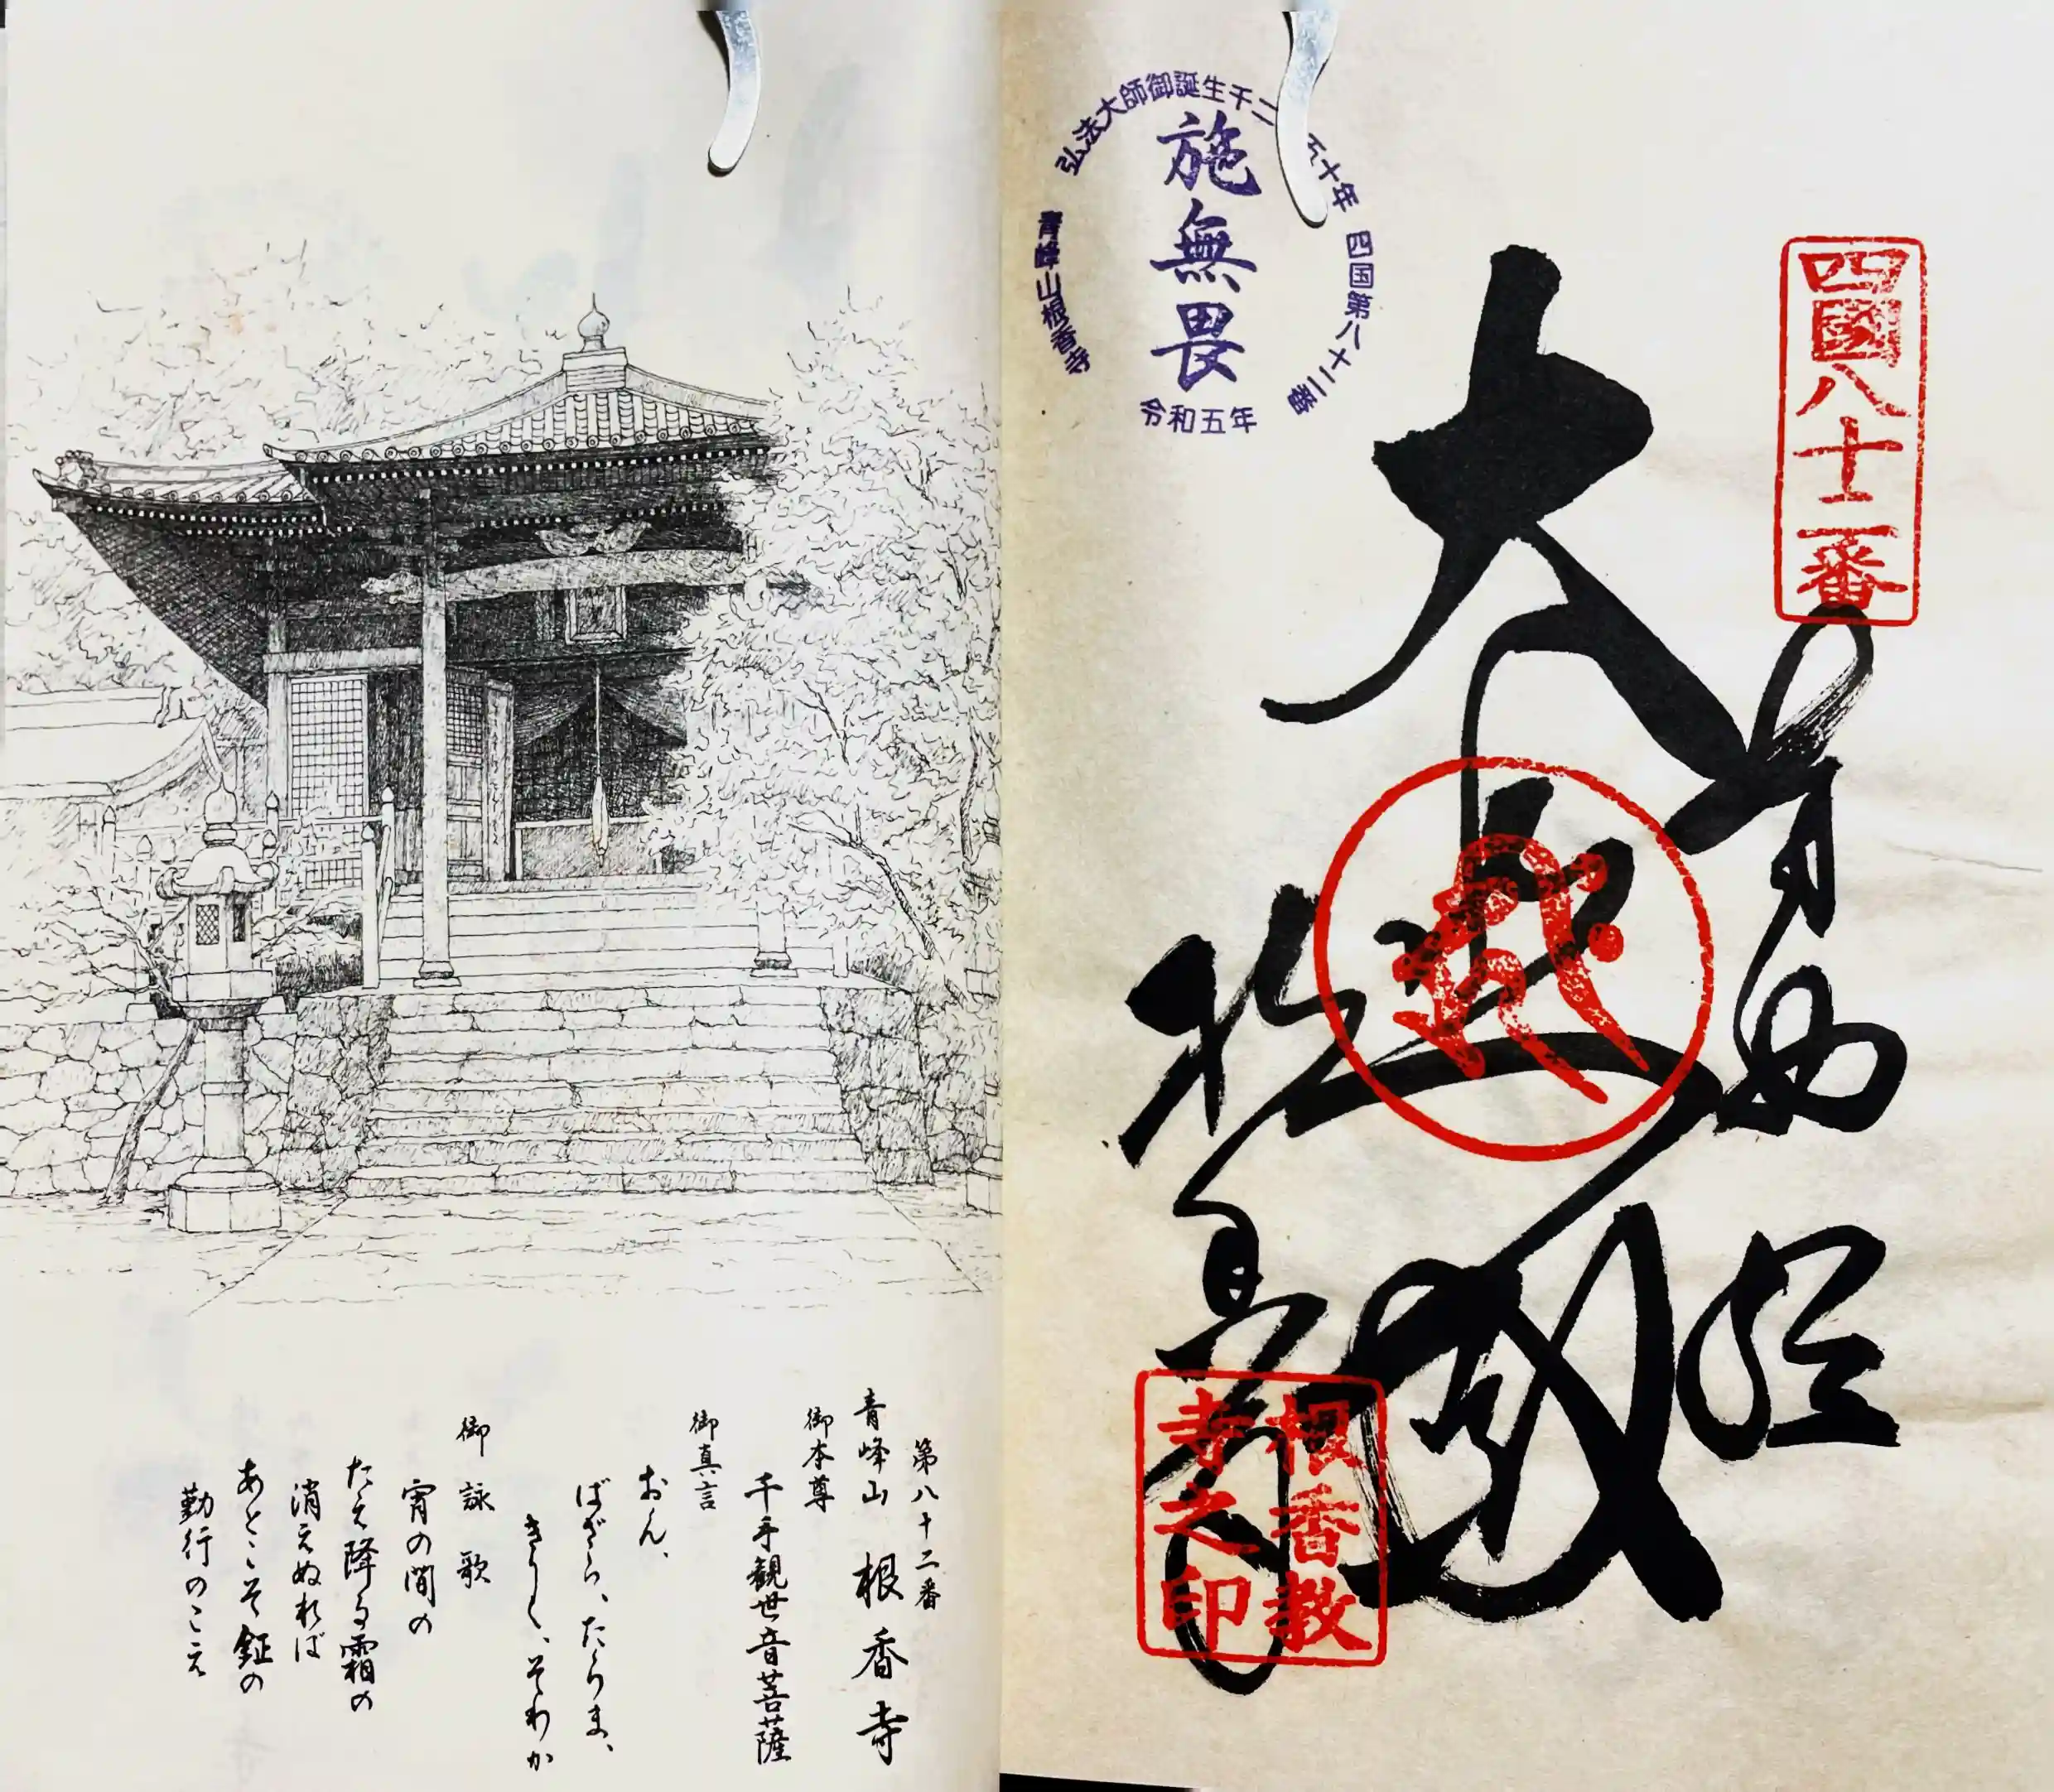 四國八十二番
奉納経
大悲殿
根香寺
根香教
寺之印
弘法大師御誕生千二 五十年
四国第八十二番
施無畏
令和五年
青峰山根香寺
第八十二番
青峰山 根香寺
御本尊
千手観世音菩薩
御真言
おん、
ばざら、たらま、
きりく、そわか
御詠歌
宵の間の
たえ降る霜の
消えぬれば
あとこそ鉦の
勤行のこえ